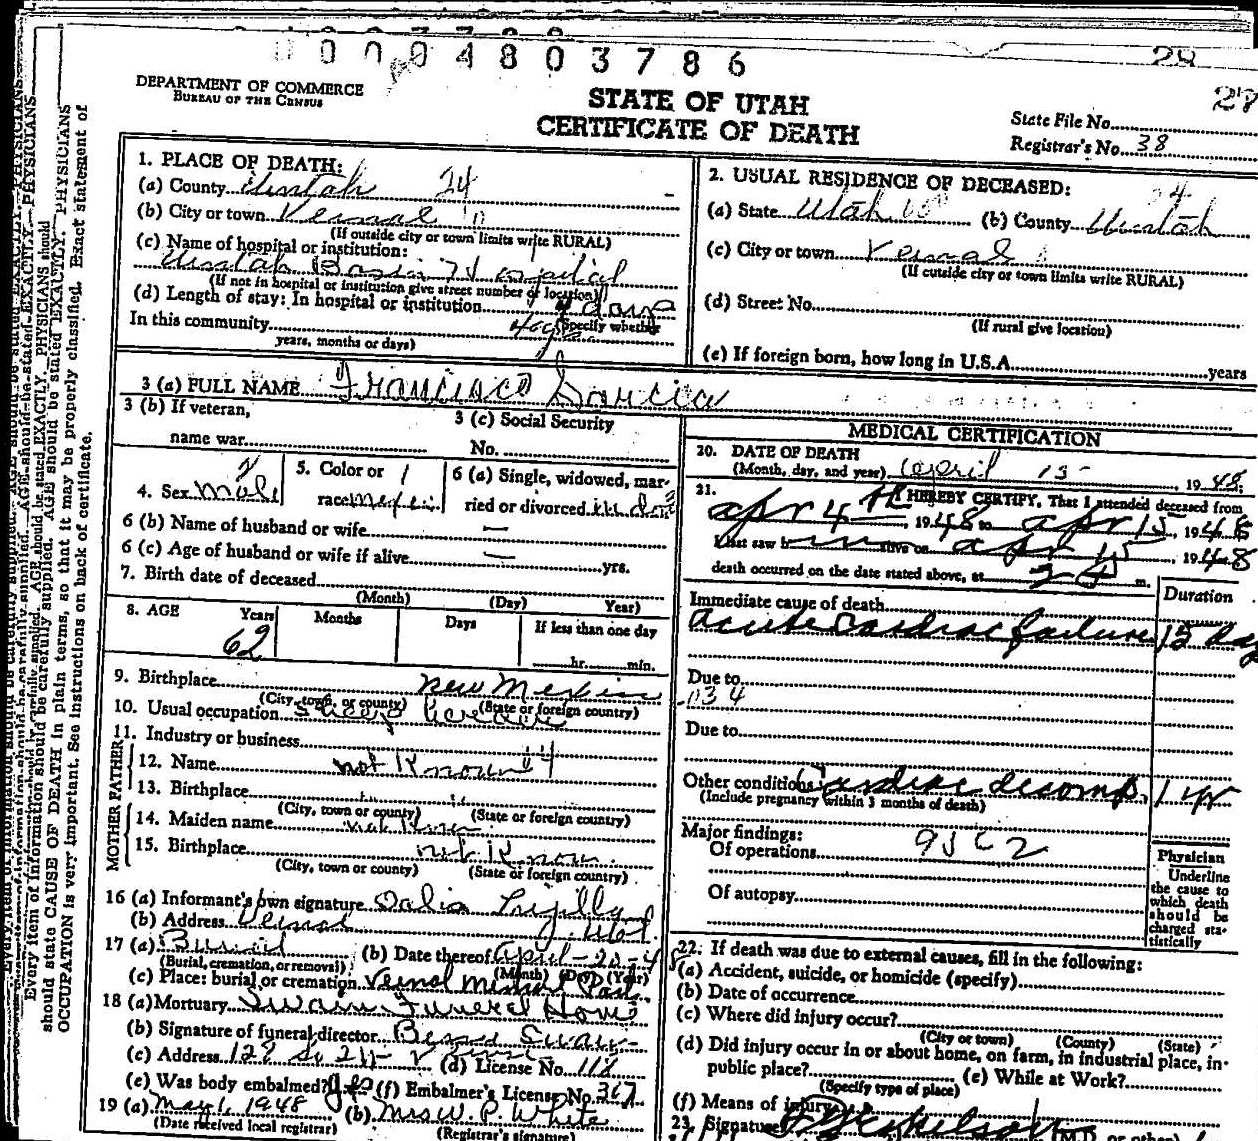 0000483786
28
DEPARTMENT OF COMMERCE
BUREAU OF THE CENSUS
STATE OF UTAH
CERTIFICATE OF DEATH
State File No.
Registrar's No. 38
1. PLACE OF DEATH:
(a) County Uintah 24
(b) City or town Vernal
(If outside city or town limits write RURAL)
(c) Name of hospital or institution:
Uintah Basin Hospital
(If not in hospital or institution give street number or location)
(d) Length of stay: In hospital or institution days
(Specify whether
In this community
years, months or days)
2. USUAL RESIDENCE OF DECEASED:
(a) State Utah (b) County Uintah
(c) City or town Vernal
(If outside city or town limits write RURAL)
(d) Street No.
(If rural give location)
(e) If foreign born, how long in U.S.A. years
3 (a) FULL NAME Francisco Garcia
3 (b) If veteran,
name war
3 (c) Social Security
No.
4. Sex Male
5. Color or
race
6 (a) Single, widowed, mar-
ried or divorced
6 (b) Name of husband or wife —
6 (c) Age of husband or wife if alive — yrs.
7. Birth date of deceased
(Month) (Day) Year)
8. AGE Years Months Days If less than one day
62 hr. min.
9. Birthplace New Mexico
(City, town, or county) (State or foreign country)
10. Usual occupation Sheep herder
11. Industry or business
FATHER
12. Name not Known
13. Birthplace
(City, town or county) (State or foreign country)
MOTHER
14. Maiden name not Known
15. Birthplace not Known
(City, town or county) (State or foreign country)
16 (a) Informant's own signature Trujillo
(b) Address Vernal Utah
17 (a) Burial (b) Date thereof April-20-48
(Burial, cremation, or removal) (Month) (Day) (Year)
(c) Place: burial or cremation Vernal
18 (a) Mortuary Swain Funeral Home
(b) Signature of funeral director Swain
(c) Address (d) License No. 118
(e) Was body embalmed? yes (f) Embalmer's License No. 367
19 (a) May 1, 1948 (b) Mrs W. P. White
(Date received local registrar) (Registrar's signature)
MEDICAL CERTIFICATION
20. DATE OF DEATH
(Month, day, and year) April 15 , 1948;
21. I HEREBY CERTIFY, That I attended deceased from
apr 4th , 1948 to apr 15, 1948
I last saw him alive on apr 15 , 1948
death occurred on the date stated above, at m.
Duration
Immediate cause of death
acute cardiac failure 15 day
Due to
034
Due to
Other conditions Cardiac decomp. 1 yr
(Include pregnancy within 3 months of death)
Major findings:
Of operations
Of autopsy
Physician
Underline
the cause to
which death
should be
charged sta-
tistically
22. If death was due to external causes, fill in the following:
(a) Accident, suicide, or homicide (specify)
(b) Date of occurrence
(c) Where did injury occur?
(City or town) (County) (State)
(d) Did injury occur in or about home, on farm, in industrial place, in
public place? (e) While at Work?
(Specify type of place)
(f) Means of injury
23. Signature (M.D. or other)
Every item of information should be carefully supplied. AGE should be stated EXACTLY. PHYSICIANS
should state CAUSE OF DEATH in plain terms, so that it may be properly classified. Exact statement of
OCCUPATION is very important. See instructions on back of certificate.